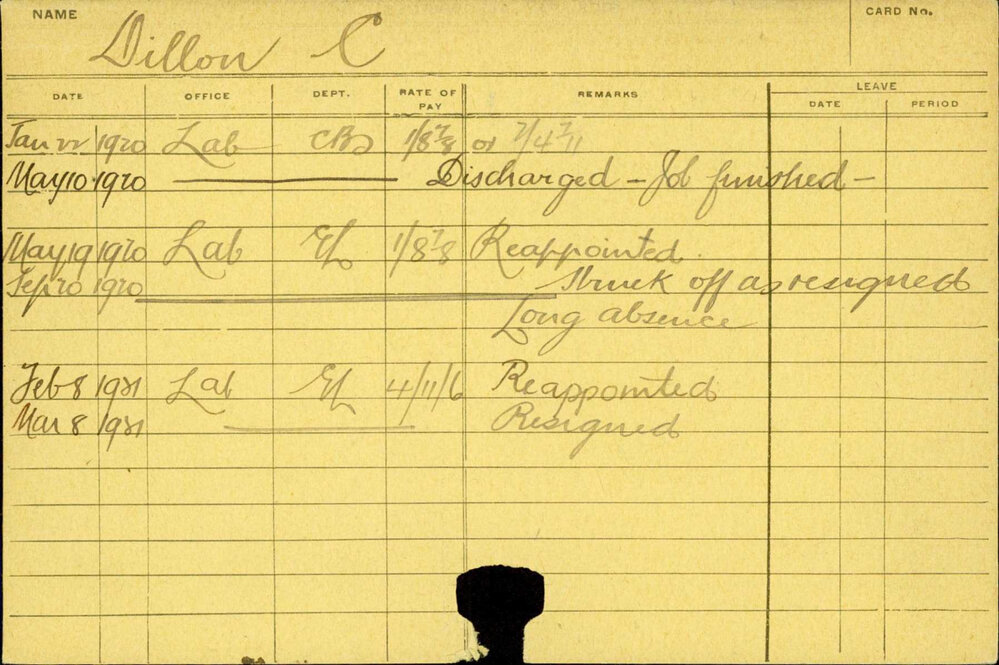 NAME
Dillon C
CARD No.
DATE OFFICE DEPT. RATE OF PAY REMARKS LEAVE
DATE PERIOD
Jan 22 1920 Lab 1/8⅞ or
May 10 1920 Discharged - Job finished -
May 19 1920 Lab 1/8⅞ Reappointed.
Sep 20 1920 Struck off as resigned
Long absence
Feb 8 1921 Lab 4/11/6 Reappointed
Mar 8 1921 Resigned